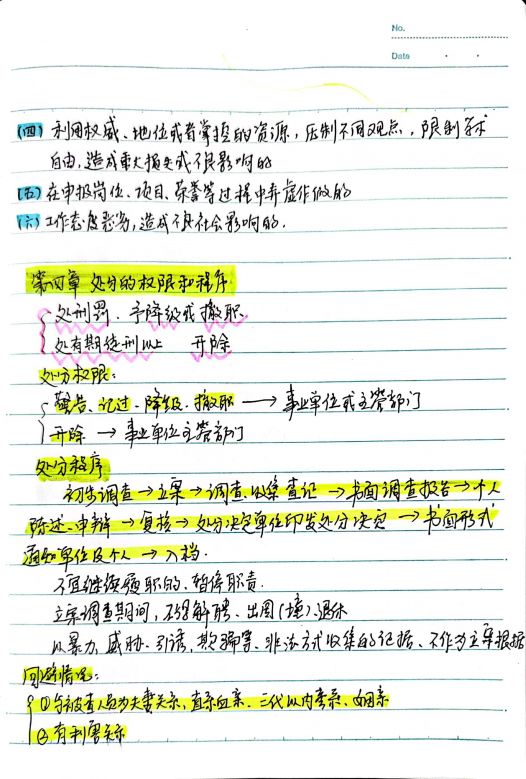 No.
Date
(四) 利用权威、地位或者掌控的资源,压制不同观点,限制学术
自由,造成重大损失或不良影响的
(五) 在申报岗位、项目、荣誉等过程中弄虚作假的
(六) 工作态度恶劣,造成不良社会影响的.
第四章 处分的权限和程序
处刑罚. 予降级或撤职
处有期徒刑以上 开除
处分权限:
警告、记过、降级、撤职 → 事业单位或主管部门
开除 → 事业单位主管部门
处分程序
初步调查→立案→调查、收集查证→书面调查报告→个人
陈述、申辩→复核→处分决定单位印发处分决定→书面形式
通知单位及个人→入档.
不宜继续履职的、暂停职责.
立案调查期间,不得解聘、出国(境)、退休
以暴力、威胁、引诱,欺骗等、非法方式收集的证据、不作为立案根据
回避情况:
①与被查人员为夫妻关系,直系血亲、三代以内旁系、姻亲
②有利害关系